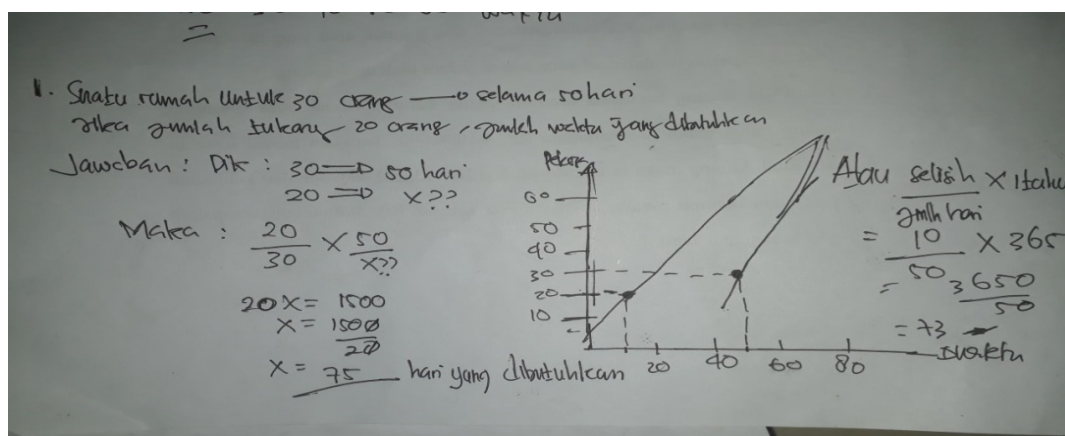 1. Suatu rumah untuk 30 orang → selama 50 hari
Jika jumlah tukang 20 orang, jumlah waktu yang dibutuhkan
Jawaban : Dik : 30 ⇒ 50 hari
20 ⇒ X??
Maka : 20/30 × 50/X??
20X = 1500
X = 1500/20
X = 75 hari yang dibutuhkan
60
50
40
30
20
10
20 40 60 80
waktu
Atau selisih/jmlh hari × 1 tahun
= 10/50 × 365
= 3650/50
= 73